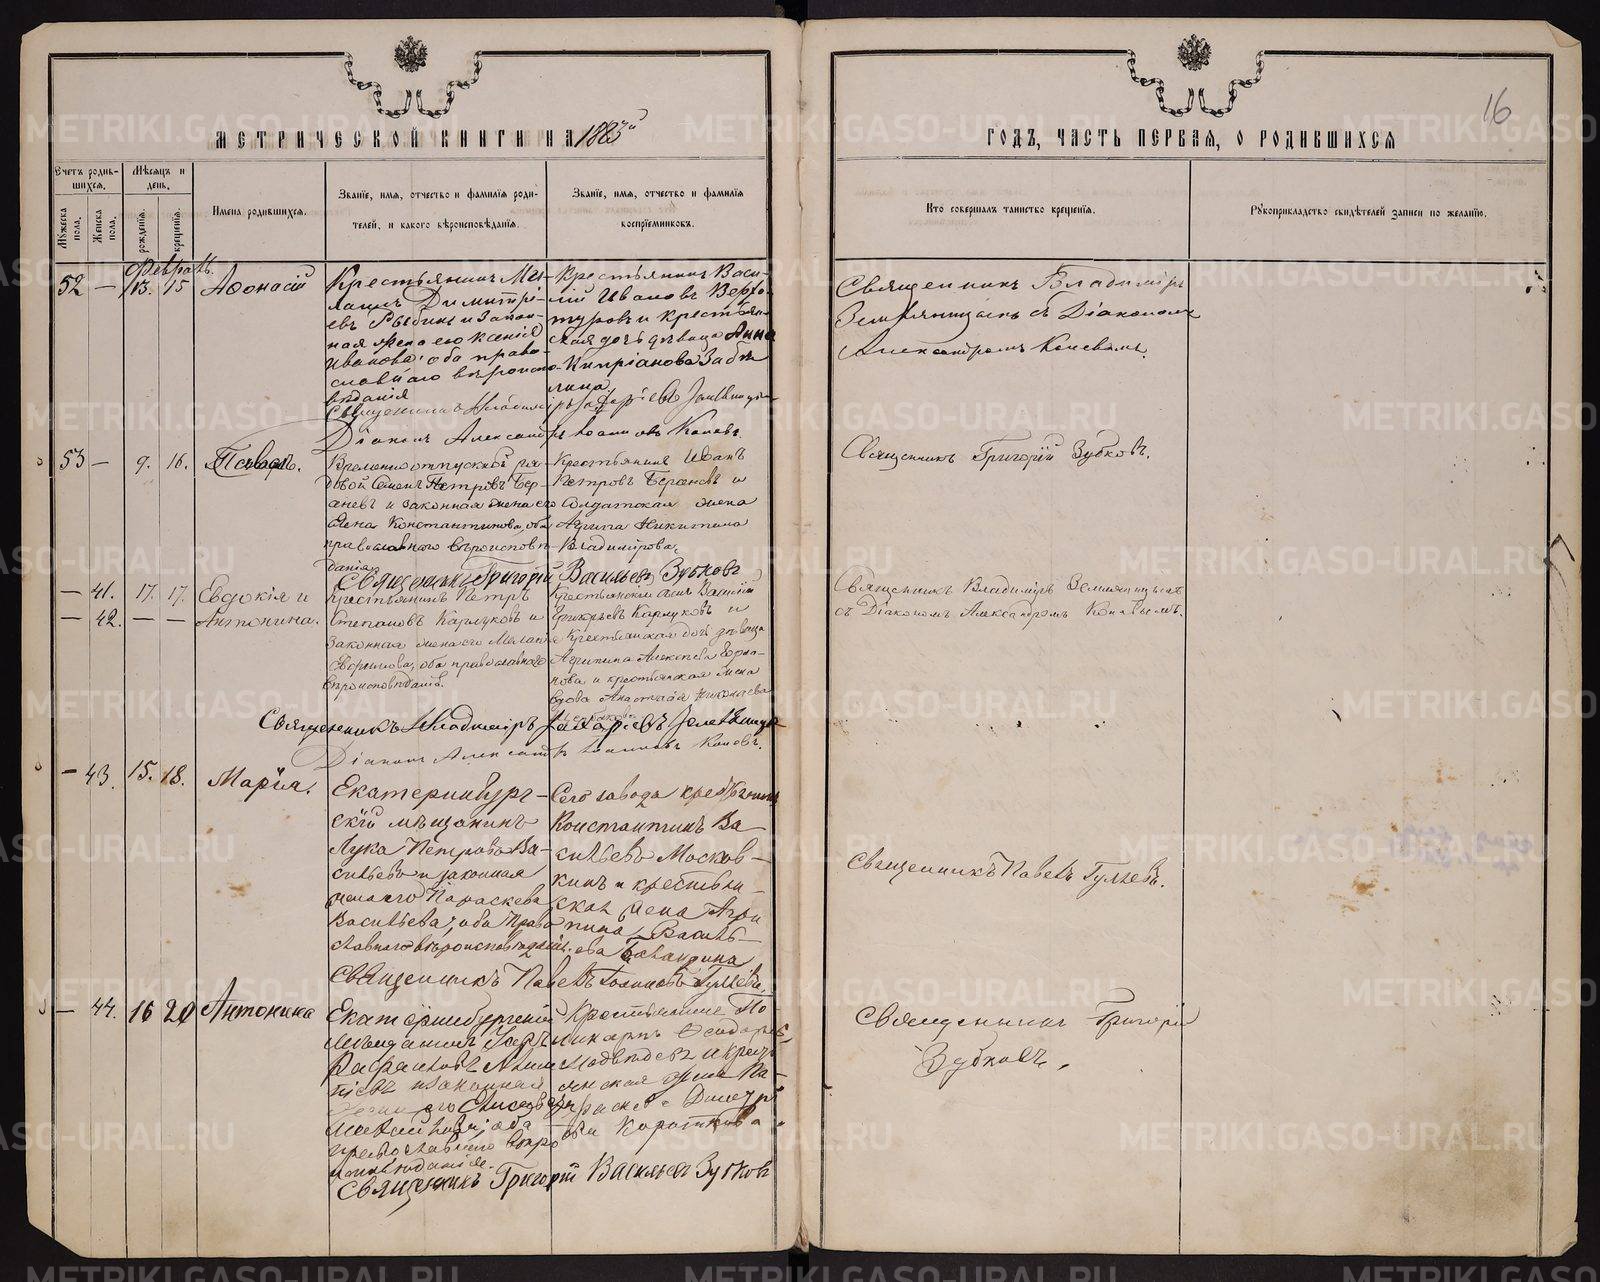 16
МЕТРИЧЕСКОЙ КНИГИ НА 1883й
ГОДЪ, ЧАСТЬ ПЕРВАЯ, О РОДИВШИХСЯ
Счетъ родив-
шихся.
Мѣсяцъ и
день.
Мужеска пола.
Женска пола.
рожденія.
крещенія.
Имена родившихся.
Званіе, имя, отчество и фамилія роди-
телей, и какого вѣроисповѣданія.
Званіе, имя, отчество и фамилія
воспріемниковъ.
Кто совершалъ таинство крещенія.
Рукоприкладство свидѣтелей записи по желанію.
Февраль.
52 — 13. 15 Афонасій
Крестьянинъ Ми-
хаилъ Димитрі-
евъ Рыбинъ и закон-
ная жена его Ксенія
Иванова, оба право-
славнаго вѣроиспо-
вѣданія
Крестьянинъ Васи-
лій Ивановъ Верхо-
туровъ и крестьян-
ская дочь дѣвица Анна
Кипріанова Забѣ
лина.
Священникъ Владиміръ
Земляницынъ съ Діакономъ
Александромъ Коневымъ.
Священникъ Владиміръ Захаріевъ Земляницын
Діаконъ Александръ Іоанновъ Коневъ.
53 — 9. 16. Павелъ.
Временноотпускной ря-
довой Семенъ Петровъ Бер-
аневъ и законная жена его
Елена Константинова, оба
православнаго вѣроисповѣ-
данія.
Крестьянинъ Иванъ
Петровъ Берсеневъ и
Солдатская жена
Агрипа Никитина
Владимірова.
Священникъ Григорій Зубковъ.
Священникъ Григорій Васильевъ Зубковъ
— 41. 17. 17. Евдокія и
— 42. — — Антонина.
Крестьянинъ Петръ
Степановъ Карлуковъ и
законная жена его Мелан
оба православнаго
вѣроисповѣданія.
Крестьянскій сынъ Василій
Григорьевъ Карлуковъ и
Крестьянская дочь дѣвица
Агрипина Алексѣева
нова и крестьянская жена
вдова Анастасія Николаева
Священникъ Владиміръ Земляницынъ
съ Діакономъ Александромъ Коневымъ.
Священникъ Владиміръ Захаріевъ Земляницын
Діаконъ Александръ Іоанновъ Коневъ.
— 43. 15. 18. Марія.
Екатеринбург-
скій мѣщанинъ
Лука Петровъ Ва-
сильевъ и законная
жена его Параскева
Васильева, оба право
славнаго вѣроисповѣданія.
Сего завода крестьянинъ
Константинъ Ва-
сильевъ Москов-
кинъ и крестьян-
ская жена Агри
пина Василь-
ева Баландина
Священникъ Павелъ Гуляевъ.
Священникъ Павелъ Іоанновъ Гуляевъ.
— 44. 16 20 Антонина
Екатеринбургскій
мѣщанинъ
и законная
жена его Елисавета
оба
православнаго вѣро
исповѣданія.
Крестьянинъ По-
ликарпъ Феодоровъ
Медвѣдевъ и кресть
янская жена Па-
раскева Димитрі
ева Короткова.
Священникъ Григорій
Зубковъ.
Священникъ Григорій Васильевъ Зубковъ
METRIKI.GASO-URAL.RU